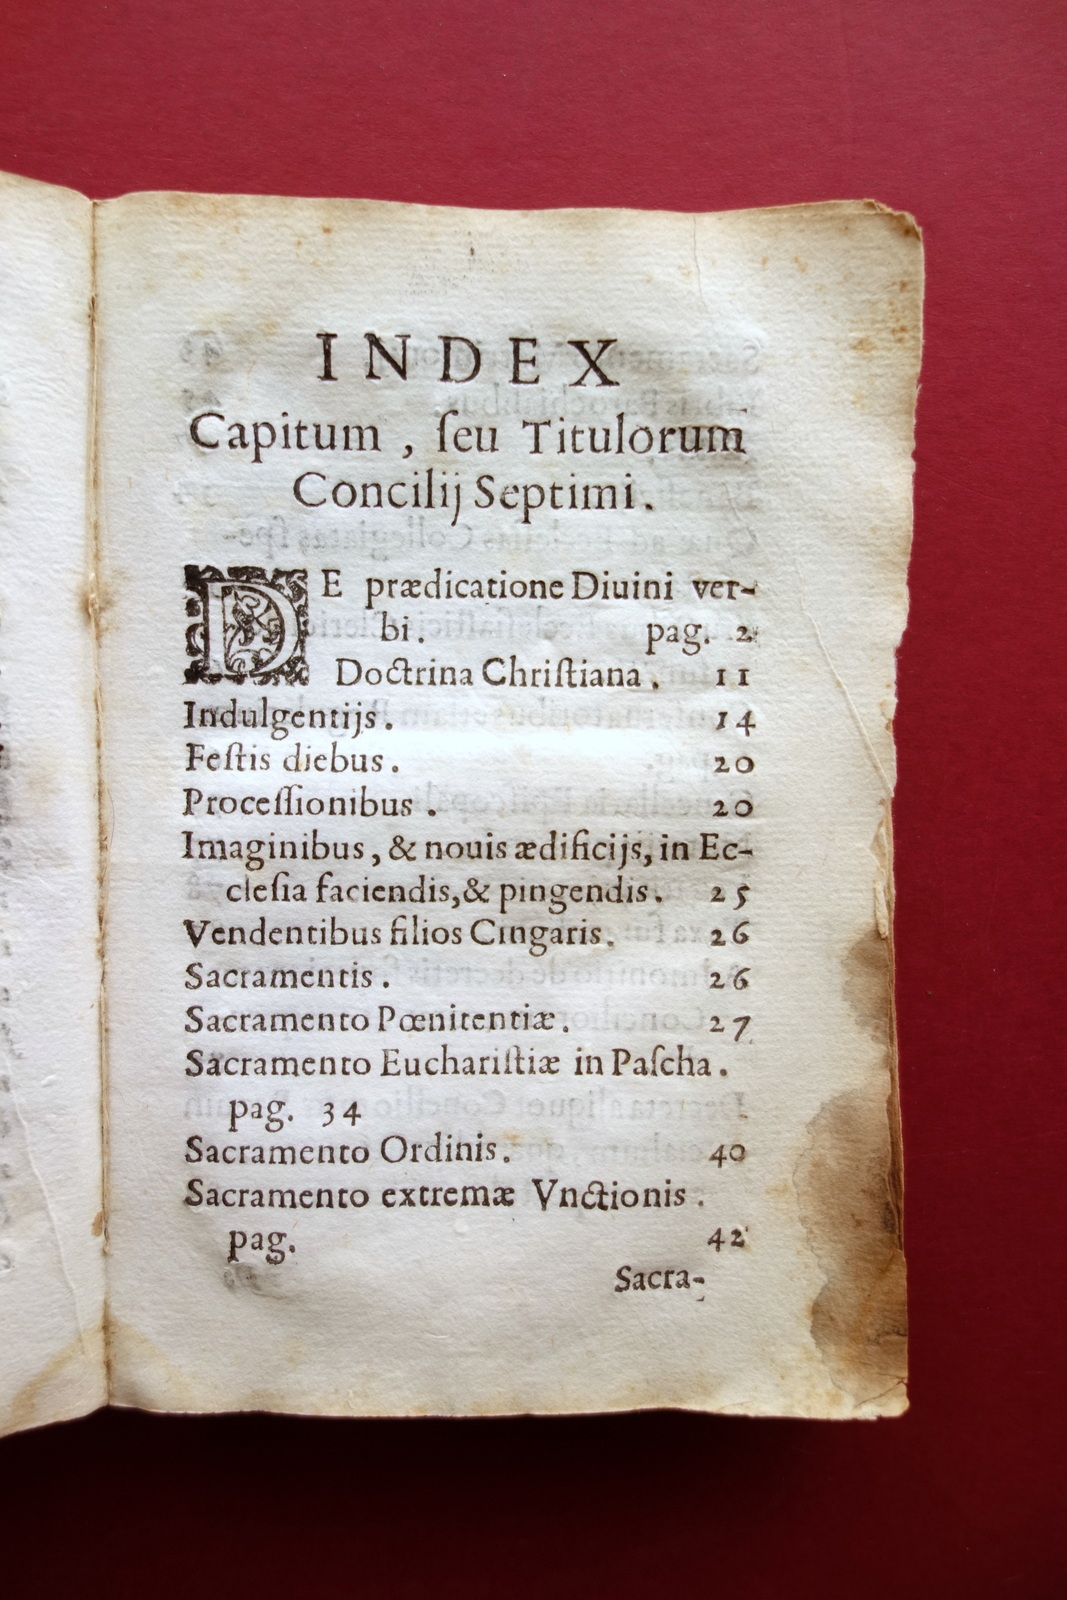 INDEX
Capitum, ſeu Titulorum
Concilij Septimi.
DE prædicatione Diuini ver-
bi. pag. 2
Doctrina Chriſtiana. 11
Indulgentijs. 14
Feſtis diebus. 20
Proceſſionibus. 20
Imaginibus, & nouis ædificijs, in Ec-
cleſia faciendis, & pingendis. 25
Vendentibus filios Cingaris. 26
Sacramentis. 26
Sacramento Pœnitentiæ. 27
Sacramento Euchariſtiæ in Paſcha.
pag. 34
Sacramento Ordinis. 40
Sacramento extremæ Vnctionis.
pag. 42
Sacra-